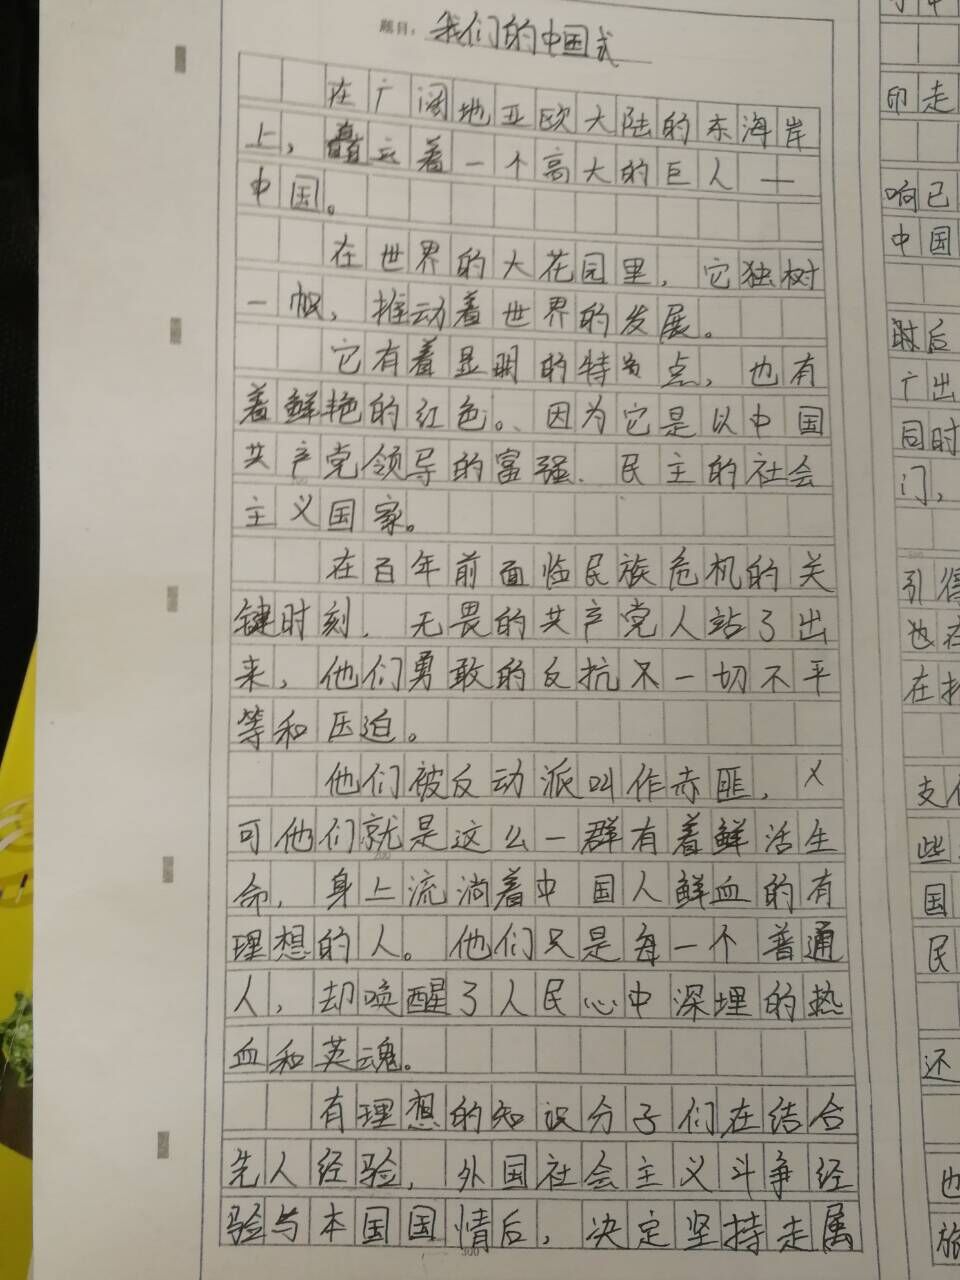 题目：我们的中国式
在广阔地亚欧大陆的东海岸
上，矗立着一个高大的巨人——
中国。
在世界的大花园里，它独树
一帜，推动着世界的发展。
它有着显明的特点，也有
着鲜艳的红色。因为它是以中国
共产党领导的富强、民主的社会
主义国家。
在百年前面临民族危机的关
键时刻，无畏的共产党人站了出
来，他们勇敢的反抗不一切不平
等和压迫。
他们被反动派叫作赤匪，
可他们就是这么一群有着鲜活生
命，身上流淌着中国人鲜血的有
理想的人。他们只是每一个普通
人，却唤醒了人民心中深埋的热
血和英魂。
有理想的知识分子们在结合
先人经验，外国社会主义斗争经
验与本国国情后，决定坚持走属
300
印走
响已
中国
时后
广出
同时
门，
引得
也在
在
支
些
国
民
还
也